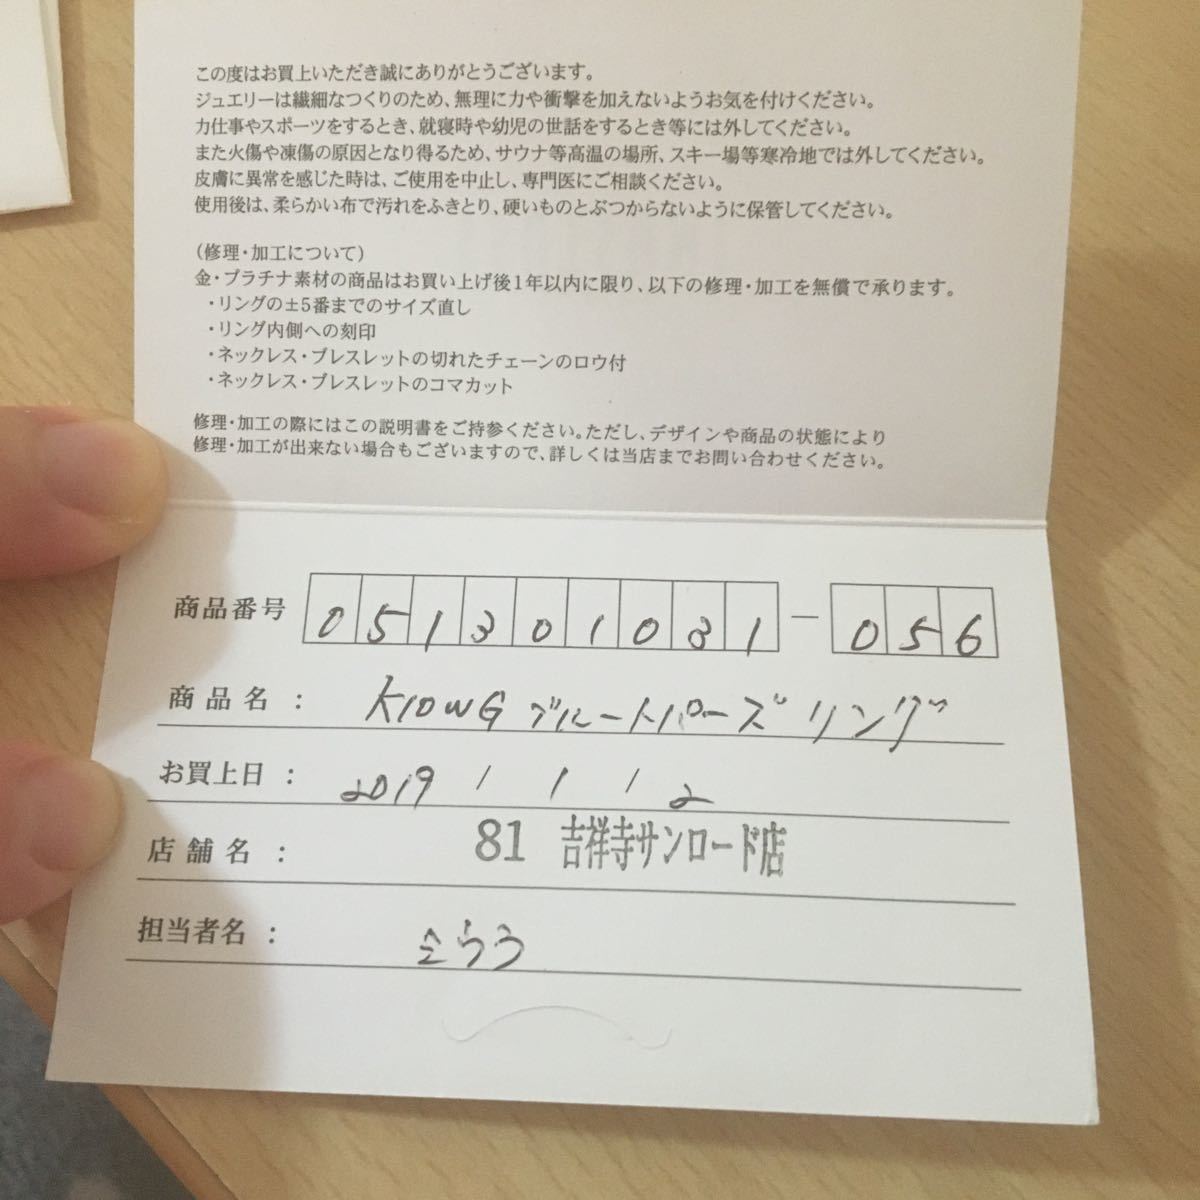 この度はお買上いただき誠にありがとうございます。
ジュエリーは繊細なつくりのため、無理に力や衝撃を加えないようお気を付けください。
力仕事やスポーツをするとき、就寝時や幼児の世話をするとき等には外してください。
また火傷や凍傷の原因となり得るため、サウナ等高温の場所、スキー場等寒冷地では外してください。
皮膚に異常を感じた時は、ご使用を中止し、専門医にご相談ください。
使用後は、柔らかい布で汚れをふきとり、硬いものとぶつからないように保管してください。
（修理・加工について）
金・プラチナ素材の商品はお買い上げ後1年以内に限り、以下の修理・加工を無償で承ります。
・リングの±5番までのサイズ直し
・リング内側への刻印
・ネックレス・ブレスレットの切れたチェーンのロウ付
・ネックレス・ブレスレットのコマカット
修理・加工の際にはこの説明書をご持参ください。ただし、デザインや商品の状態により
修理・加工が出来ない場合もございますので、詳しくは当店までお問い合わせください。
商品番号 051301031-056
商品名： K10WG ブルートパーズリング
お買上日： 2019 / 1 / 12
店舗名： 81 吉祥寺サンロード店
担当者名：